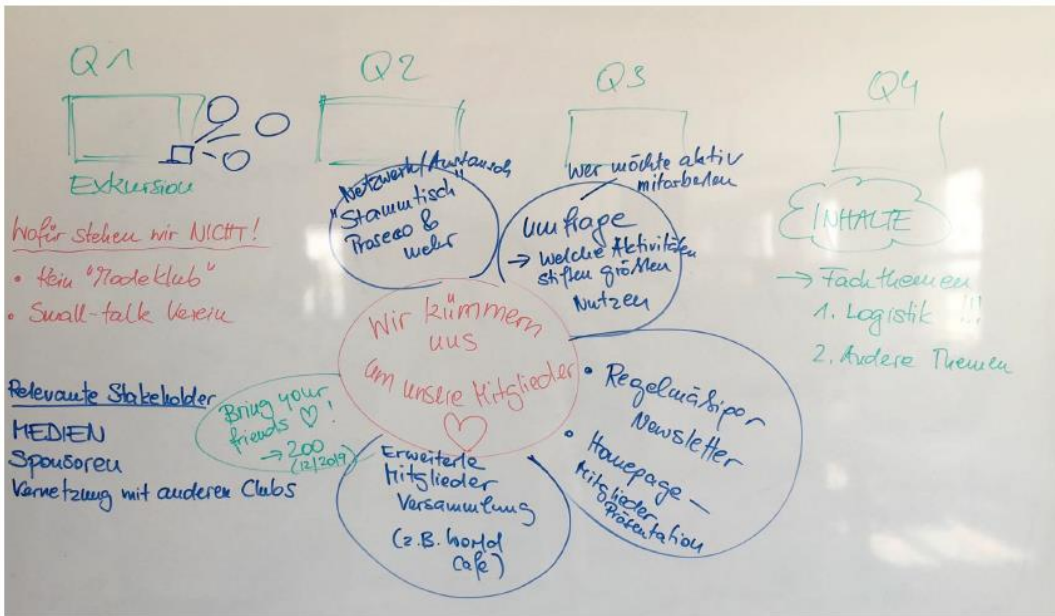 Q1
Q2
Q3
Q4
Exkursion
Wofür stehen wir NICHT!
• Kein "Modeklub"
• Small-talk Verein
Relevante Stakeholder
MEDIEN
Sponsoren
Vernetzung mit anderen Clubs
Netzwerk/Austausch
"Stammtisch"
Prosecco &
mehr
Wer möchte aktiv
mitarbeiten
Umfrage
→ Welche Aktivitäten
stiften größten
Nutzen
Wir kümmern
uns
um unsere Mitglieder
Bring your
friends ♡!
→ 200
(12/2019)
Erweiterte
Mitglieder
Versammlung
(z.B. World
Café)
• Regelmäsiger
Newsletter
• Homepage –
Mitglieder
Präsentation
INHALTE
→ Fachthemen
1. Logistik !!!
2. Andere Themen